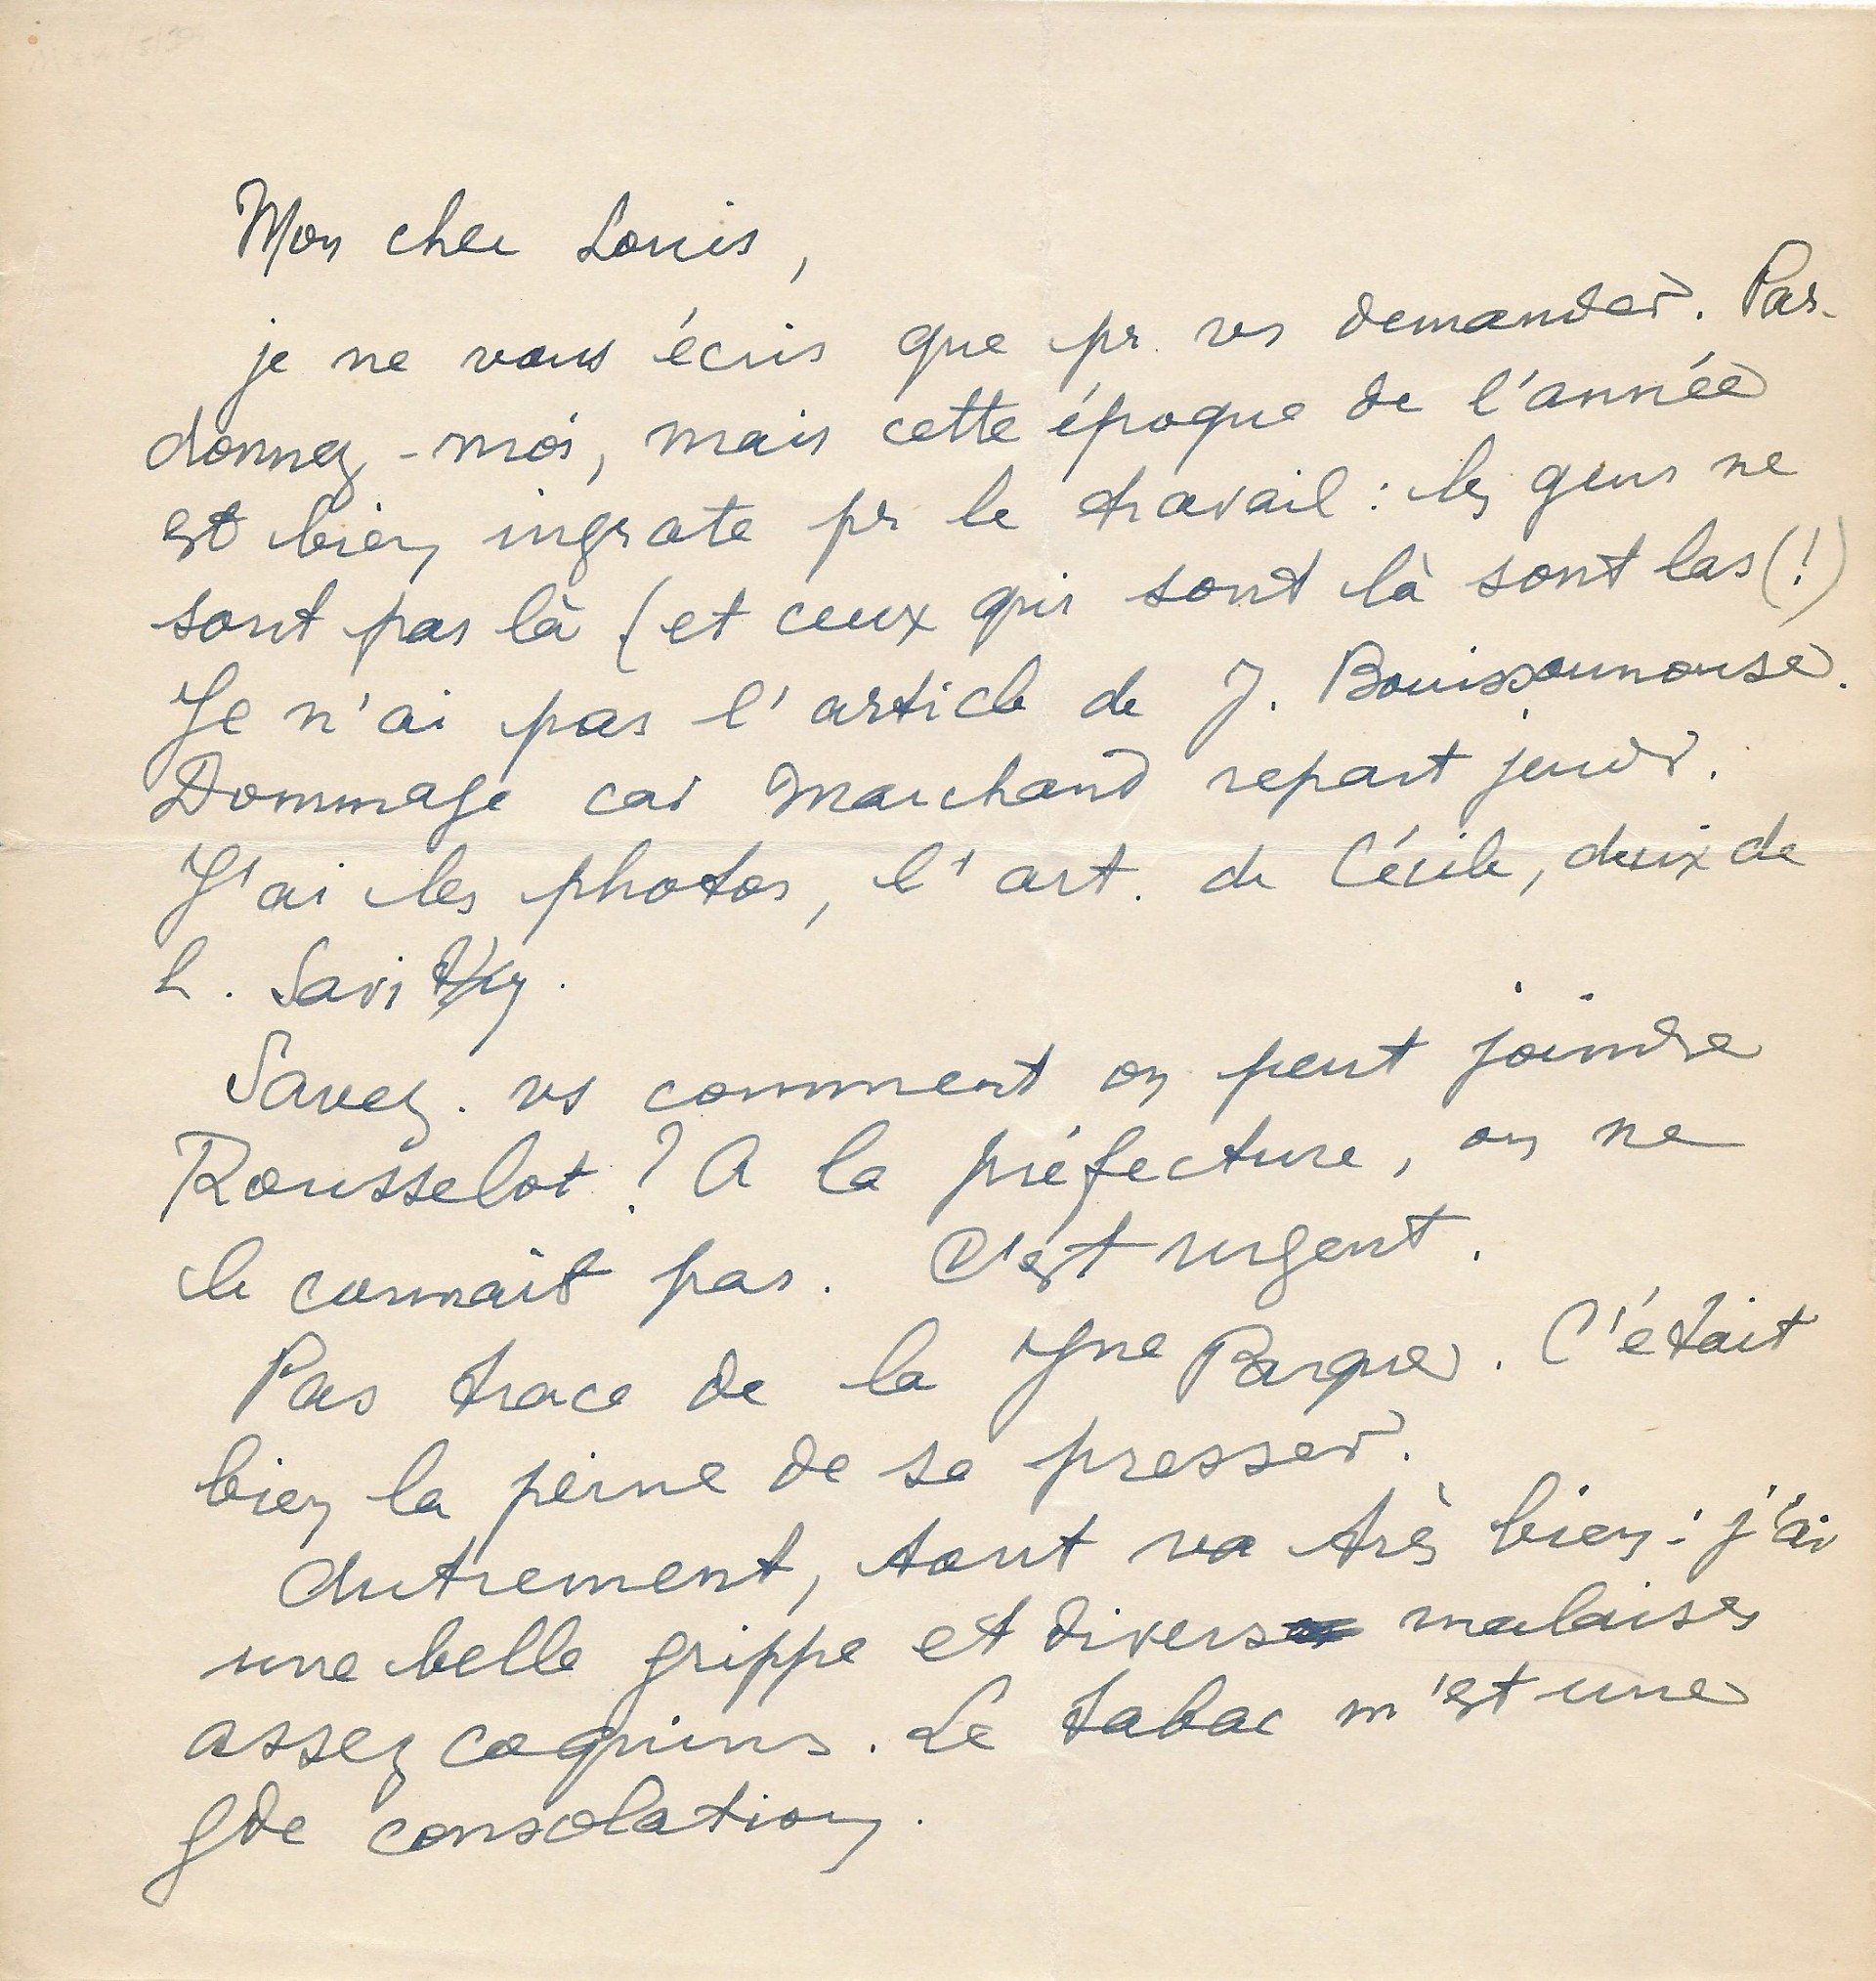 Mon cher Louis,
je ne vous écris que pr. vs demander. Par-
donnez-moi, mais cette époque de l'année
est bien ingrate pr le travail : les gens ne
sont pas là (et ceux qui sont là sont las (!)
Je n'ai pas l'article de J. Bouissounouse.
Dommage car Marchand repart jeudi.
J'ai les photos, l'art. de Cécile, deux de
L. Savitzky.
Savez-vs comment on peut joindre
Rousselot ? A la préfecture, on ne
le connait pas. C'est urgent.
Pas trace de la Jne Parque. C'était
bien la peine de se presser.
Autrement, tout va très bien : j'ai
une belle grippe et divers malaises
assez coquins. Le tabac m'est une
gde consolation.